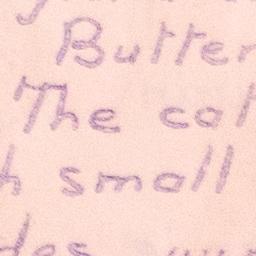 Butter
The cat
h small
des